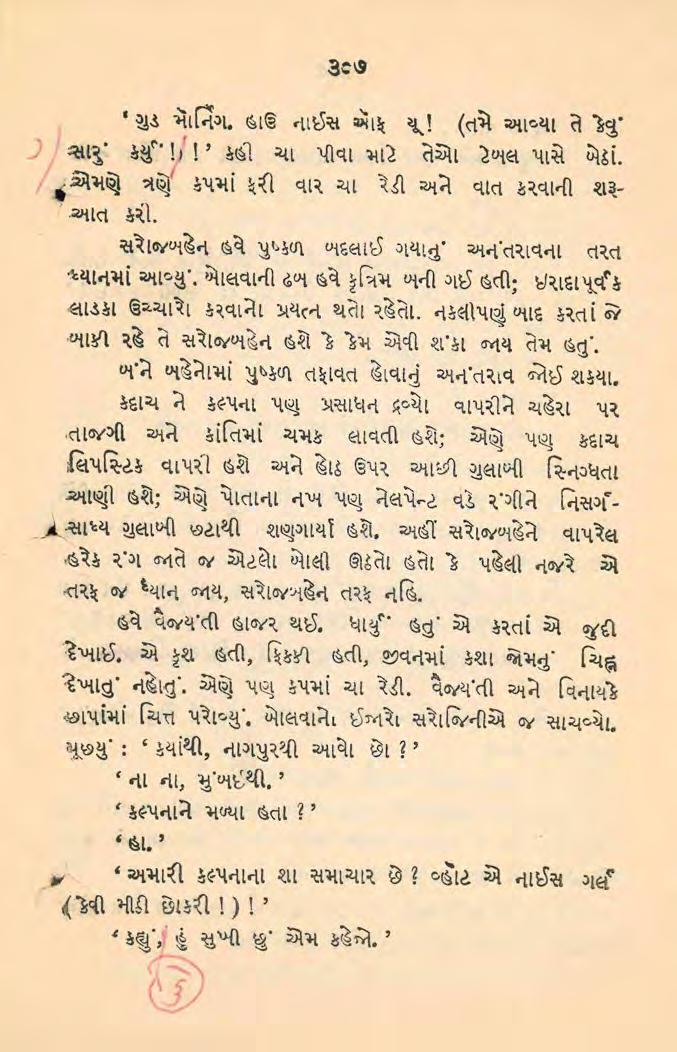 ૩૮૭
‘ ગુડ મૉર્નિંગ. હાઉ નાઈસ ઑફ યૂ! (તમે આવ્યા તે કેવું
સારું કર્યું!) !’ કહી ચા પીવા માટે તેઓ ટેબલ પાસે બેઠાં.
એમણે ત્રણે કપમાં ફરી વાર ચા રેડી અને વાત કરવાની શરૂ-
આત કરી.
સરોજબહેન હવે પુષ્કળ બદલાઈ ગયાનું અનંતરાવના તરત
ધ્યાનમાં આવ્યું. બોલવાની ઢબ હવે કૃત્રિમ બની ગઈ હતી; ઇરાદાપૂર્વક
લાડકા ઉચ્ચારો કરવાનો પ્રયત્ન થતો રહેતો. નકલીપણું બાદ કરતાં જે
બાકી રહે તે સરોજબહેન હશે કે કેમ એવી શંકા જાય તેમ હતું.
બંને બહેનોમાં પુષ્કળ તફાવત હોવાનું અનંતરાવ જોઈ શક્યા.
કદાચ ને કલ્પના પણ પ્રસાધન દ્રવ્યો વાપરીને ચહેરા પર
તાજગી અને કાંતિમાં ચમક લાવતી હશે; એણે પણ કદાચ
લિપસ્ટિક વાપરી હશે અને હોઠ ઉપર આછી ગુલાબી સ્નિગ્ધતા
આણી હશે; એણે પોતાના નખ પણ નેલપેન્ટ વડે રંગીને નિસર્ગ-
સાધ્ય ગુલાબી છટાથી શણગાર્યા હશે. અહીં સરોજબહેને વાપરેલ
હરેક રંગ જાતે જ એટલો બોલી ઊઠતો હતો કે પહેલી નજરે એ
તરફ જ ધ્યાન જાય, સરોજબહેન તરફ નહિ.
હવે વૈજયંતી હાજર થઈ. ધાર્યું હતું એ કરતાં એ જુદી
દેખાઈ. એ કૃશ હતી, ફિક્કી હતી, જીવનમાં કશા જોમનું ચિહ્ન
દેખાતું નહોતું. એણે પણ કપમાં ચા રેડી. વૈજયંતી અને વિનાયકે
છાપાંમાં ચિત્ત પરોવ્યું. બોલવાનો ઈજારો સરોજિનીએ જ સાચવ્યો.
પૂછ્યું : ‘ કયાંથી, નાગપુરથી આવો છો ?’
‘ ના ના, મુંબઈથી.’
‘ કલ્પનાને મળ્યા હતા ?’
‘ હા.’
‘ અમારી કલ્પનાના શા સમાચાર છે ? વ્હૉટ એ નાઈસ ગર્લ
( કેવી મીઠી છોકરી ! ) !’
‘ કહ્યું, હું સુખી છું એમ કહેજો.’